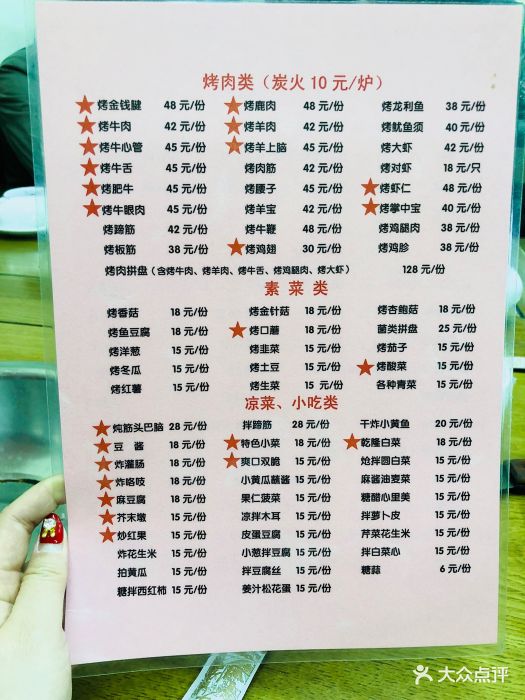 烤肉类（炭火10元/炉）
★烤金钱腱 48 元/份 ★烤鹿肉 48 元/份 烤龙利鱼 38 元/份
★烤牛肉 42 元/份 ★烤羊肉 42 元/份 烤鱿鱼须 40 元/份
★烤牛心管 45 元/份 ★烤羊上脑 45 元/份 烤大虾 42 元/份
★烤牛舌 45 元/份 烤肉筋 42 元/份 烤对虾 18 元/只
★烤肥牛 45 元/份 烤腰子 45 元/份 ★烤虾仁 48 元/份
★烤牛眼肉 45 元/份 烤羊宝 42 元/份 ★烤掌中宝 40 元/份
烤蹄筋 42 元/份 烤牛鞭 48 元/份 烤鸡腿肉 38 元/份
烤板筋 38 元/份 ★烤鸡翅 30 元/份 烤鸡胗 38 元/份
烤肉拼盘（含烤牛肉、烤羊肉、烤牛舌、烤鸡腿肉、烤大虾） 128 元/份
素菜类
烤香菇 18 元/份 烤金针菇 18 元/份 烤杏鲍菇 18 元/份
烤鱼豆腐 18 元/份 ★烤口蘑 18 元/份 菌类拼盘 25 元/份
烤洋葱 15 元/份 烤韭菜 15 元/份 烤茄子 15 元/份
烤冬瓜 15 元/份 烤土豆 15 元/份 ★烤酸菜 15 元/份
烤红薯 15 元/份 烤生菜 15 元/份 各种青菜 15 元/份
凉菜、小吃类
★炖筋头巴脑 28 元/份 拌蹄筋 28 元/份 干炸小黄鱼 20 元/份
★豆酱 18 元/份 ★特色小菜 18 元/份 ★乾隆白菜 18 元/份
★炸灌肠 18 元/份 ★爽口双脆 15 元/份 炝拌圆白菜 15 元/份
★炸咯吱 18 元/份 小黄瓜蘸酱 15 元/份 麻酱油麦菜 15 元/份
★麻豆腐 18 元/份 果仁菠菜 15 元/份 糖醋心里美 15 元/份
★芥末墩 15 元/份 凉拌木耳 15 元/份 拌萝卜皮 15 元/份
★炒红果 15 元/份 皮蛋豆腐 15 元/份 芹菜花生米 15 元/份
炸花生米 15 元/份 小葱拌豆腐 15 元/份 拌白菜心 15 元/份
拍黄瓜 15 元/份 拌豆腐丝 15 元/份 糖蒜 6 元/份
糖拌西红柿 15 元/份 姜汁松花蛋 15 元/份
大众点评